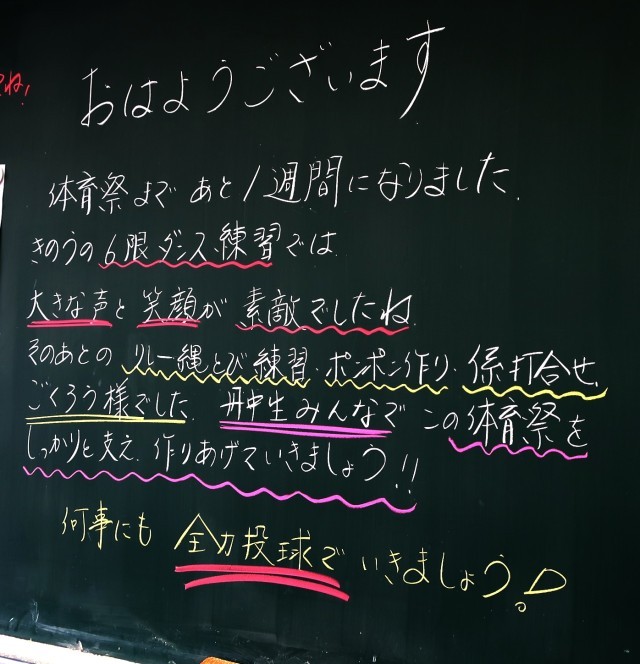 おはようございます
ね!
体育祭まで あと1週間になりました.
きのうの6限ダンス練習では
大きな声と笑顔が素敵でしたね.
そのあとの リレー縄とび練習・ポンポン作り・係打合せ.
ごくろう様でした. 丹中生みんなで この体育祭を
しっかりと支え、作りあげていきましょう!!
何事にも 全力投球で いきましょう!